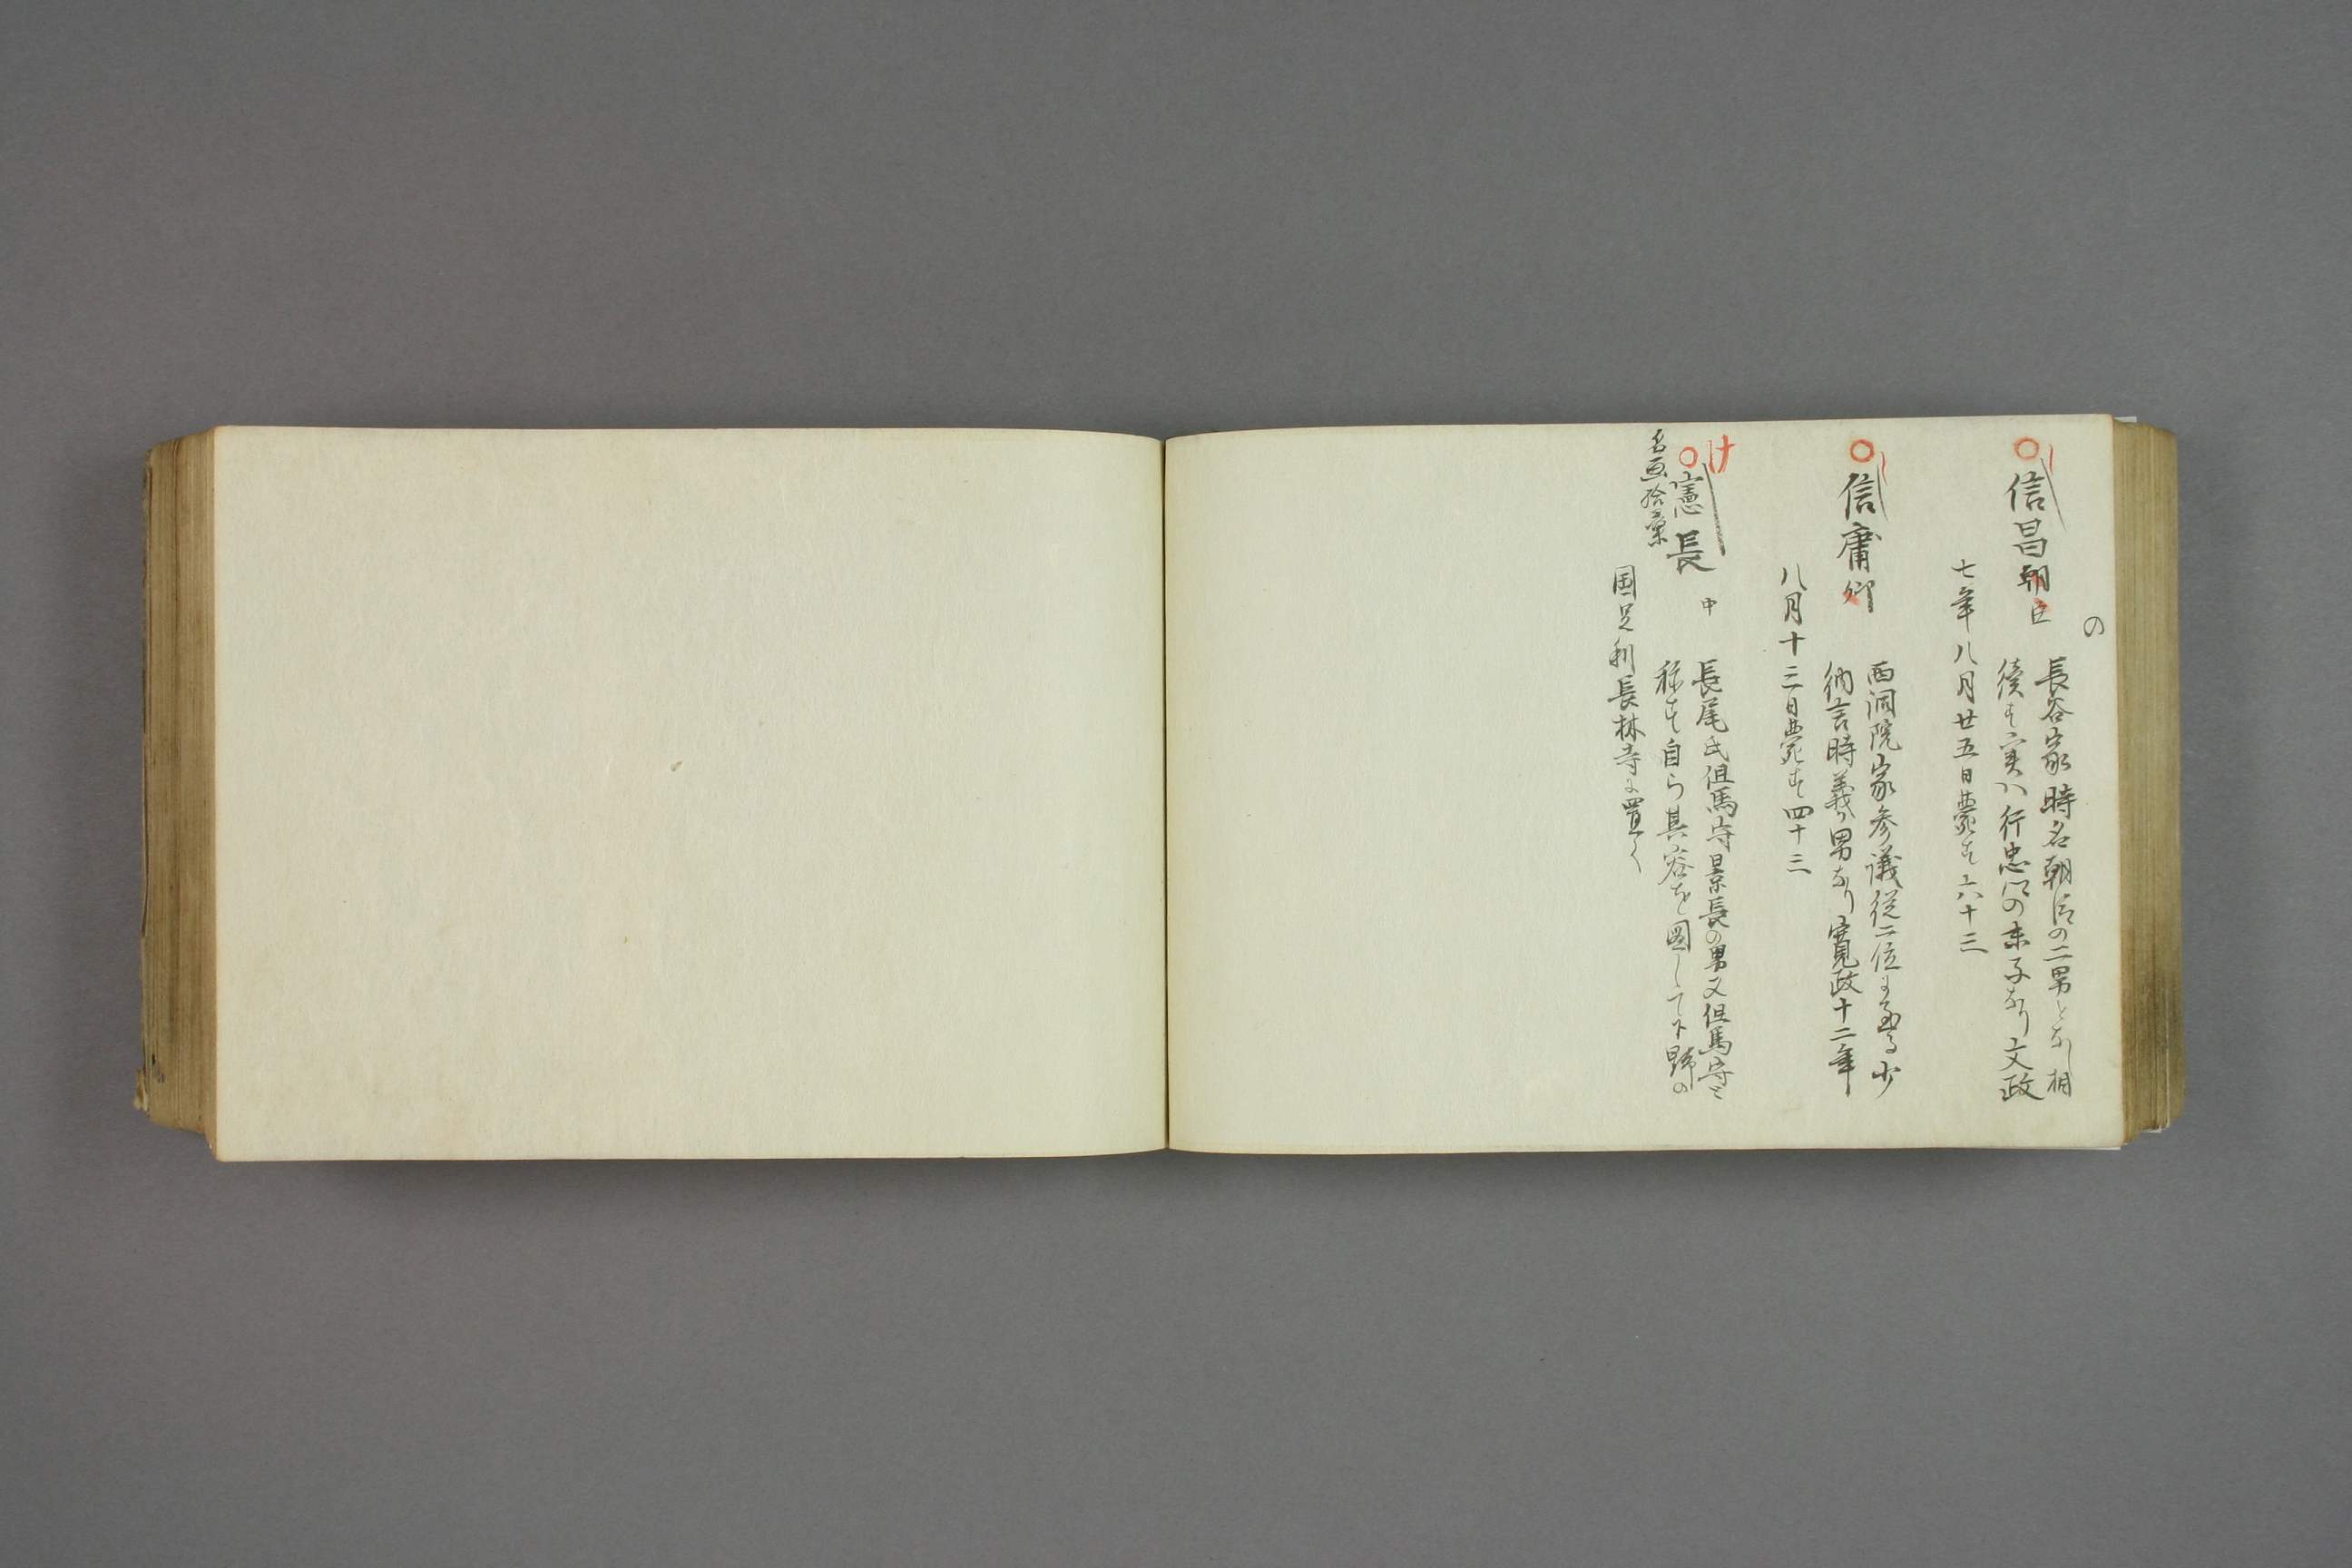 の
信昌朝臣
長谷家時名朝臣の二男となし相
続す実ハ行忠公の末子なり文政
七年八月廿五日薨す六十三
信庸卿
西洞院家参議従二位に至る少
納言時義の男なり寛政十二年
八月十三日薨す四十三
け
憲長 中
長尾氏但馬守景長の男又但馬守と
称す自ら其容を図して下野の
国足利長林寺に置く
名画拾彙